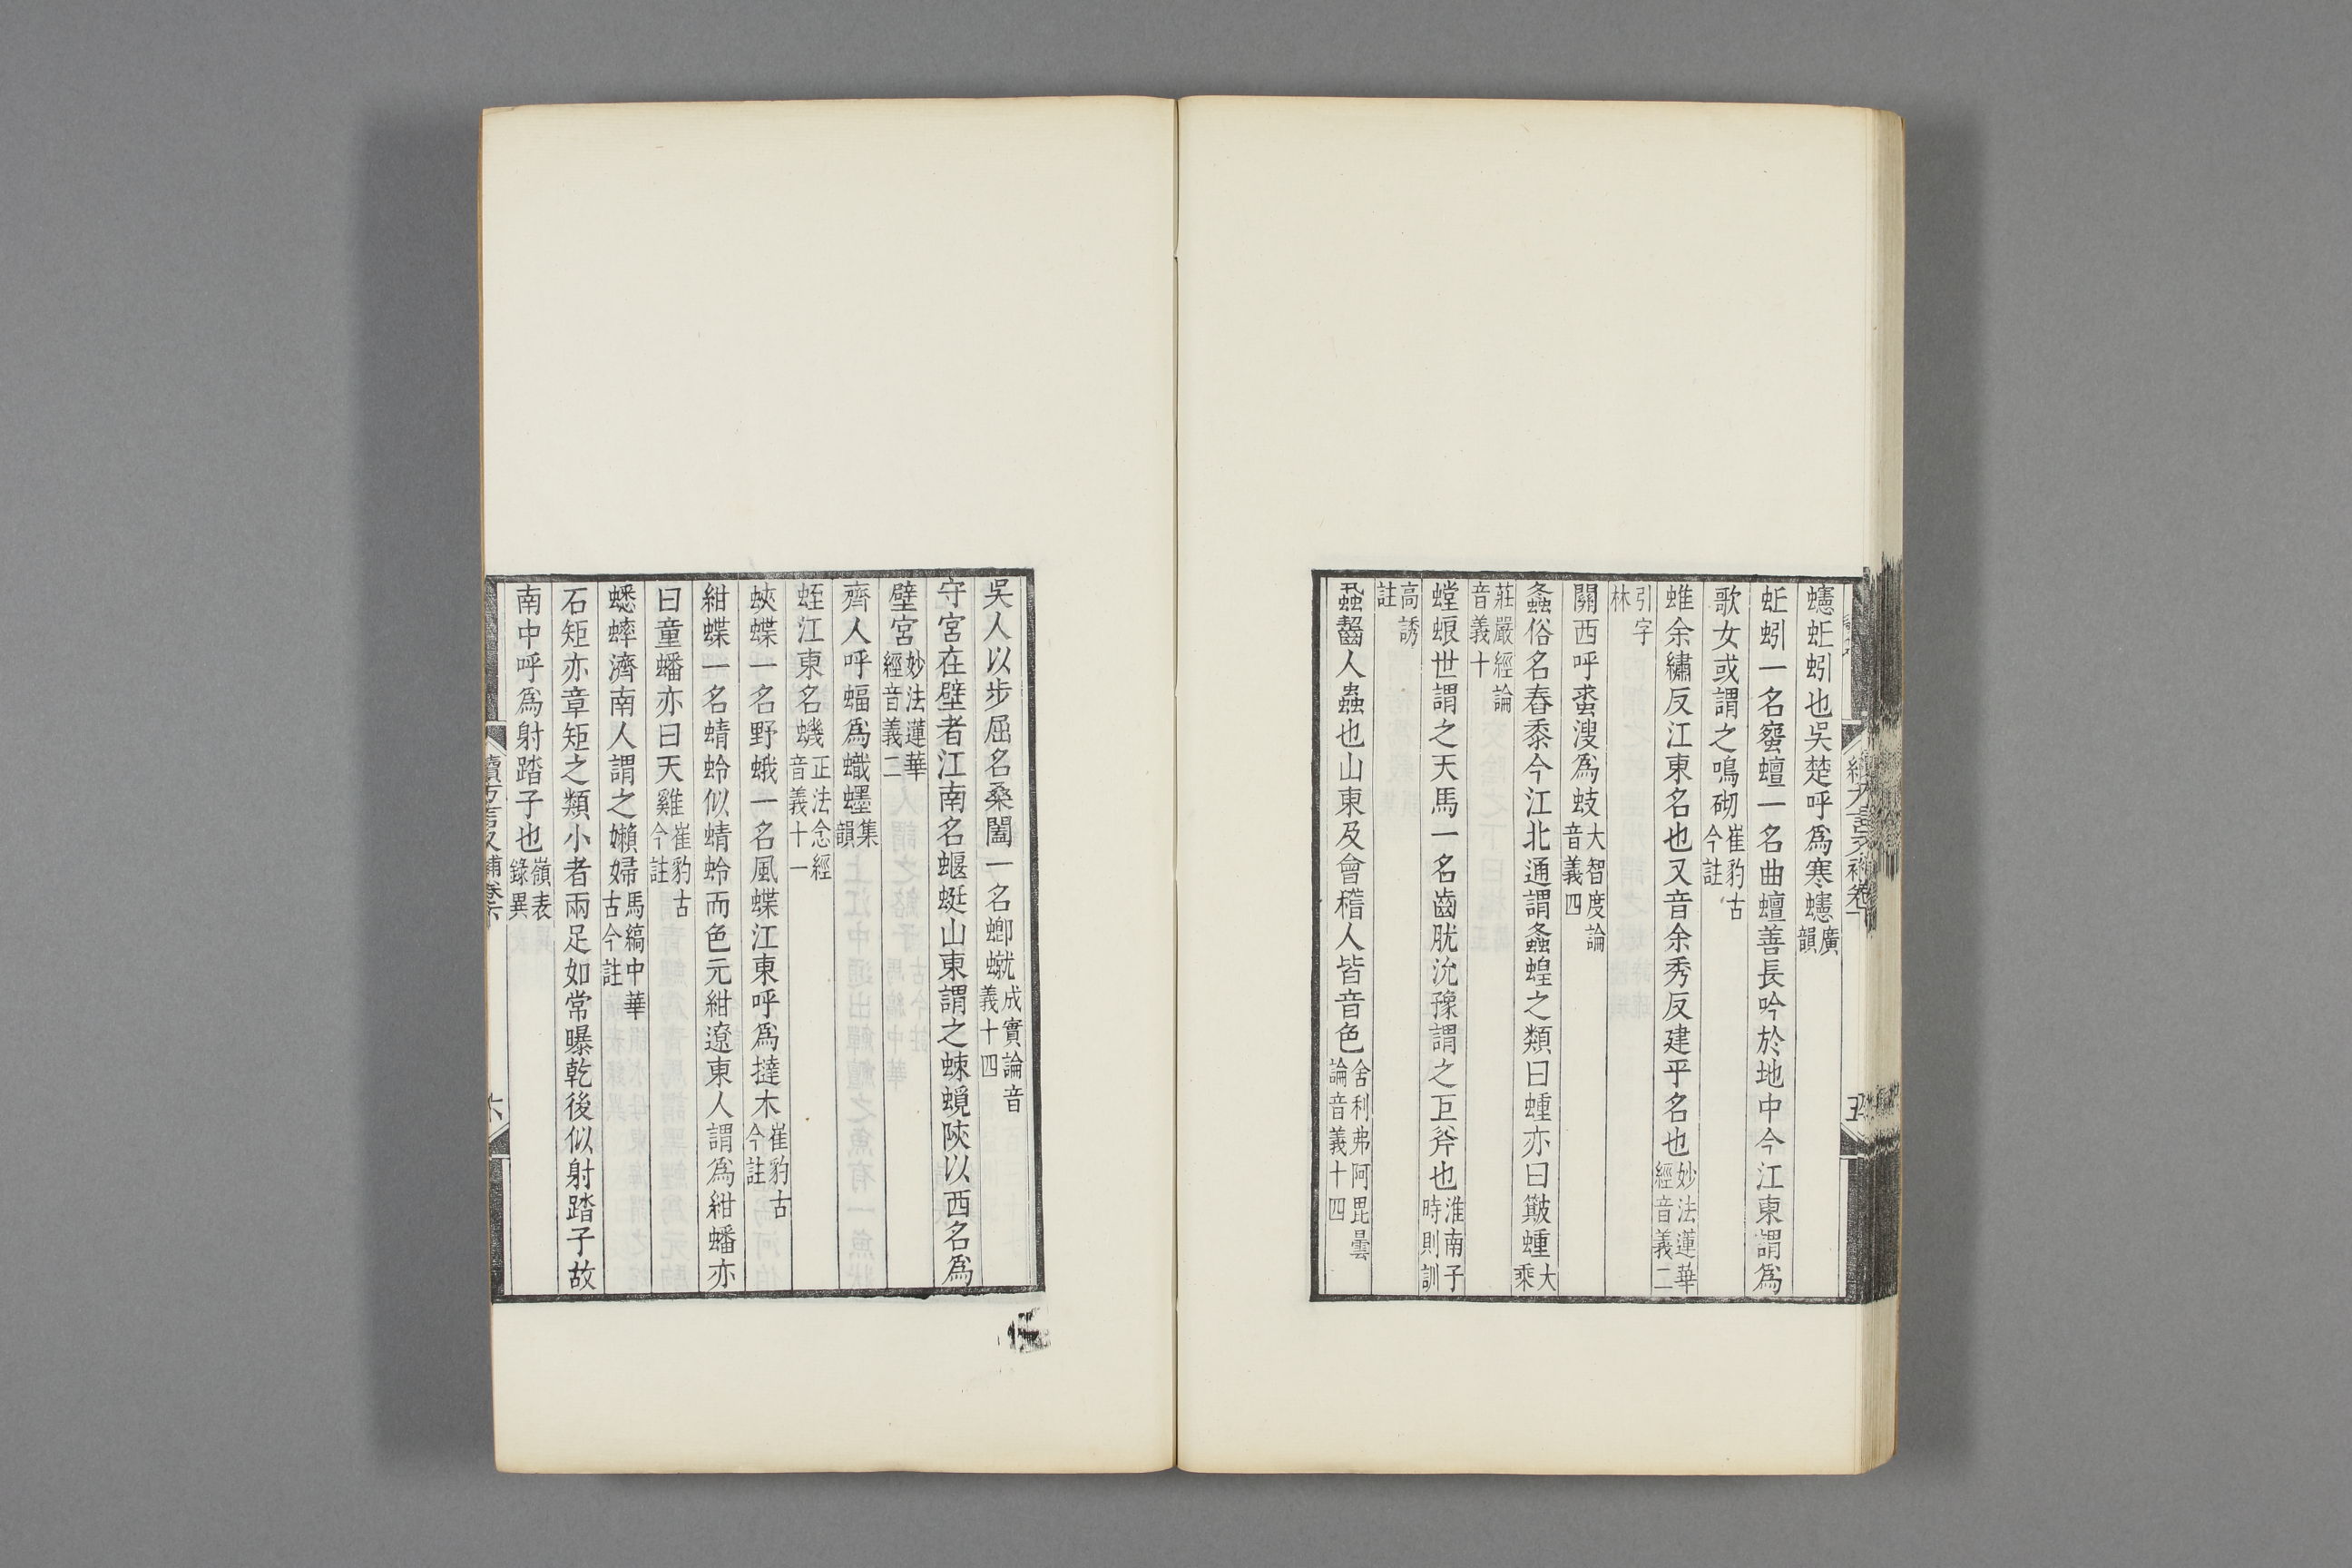 蟪蚯蚓也吳楚呼爲寒蟪廣韻
蚯蚓一名蜜蟺一名曲蟺善長吟於地中今江東謂爲
歌女或謂之鳴砌崔豹古今註
蜼余繡反江東名也又音余秀反建平名也妙法蓮華經音義二
引字林
關西呼蛷溲爲蚑大智度論音義四
螽俗名舂黍今江北通謂螽蝗之類曰蝩亦曰簸蝩大乘
莊嚴經論音義十
螳蜋世謂之天馬一名齒肬沇豫謂之巨斧也淮南子時則訓
高誘註
蝨齧人蟲也山東及會稽人皆音色舍利弗阿毘曇論音義十四
吳人以步屈名桑闔一名螂蝛成實論音義十四
守宮在壁者江南名蝘蜓山東謂之蝀蜆陝以西名爲
壁宮妙法蓮華經音義二
齊人呼蝠爲蟙䘃集韻
蛭江東名蟣正法念經音義十一
蛺蝶一名野蛾一名風蝶江東呼爲撻木崔豹古今註
紺蝶一名蜻蛉似蜻蛉而色元紺遼東人謂爲紺蟠亦
曰童蟠亦曰天雞崔豹古今註
蟋蟀濟南人謂之嬾婦馬縞中華古今註
石矩亦章矩之類小者兩足如常曝乾後似射踏子故
南中呼爲射踏子也嶺表錄異
續方言又補卷六
六